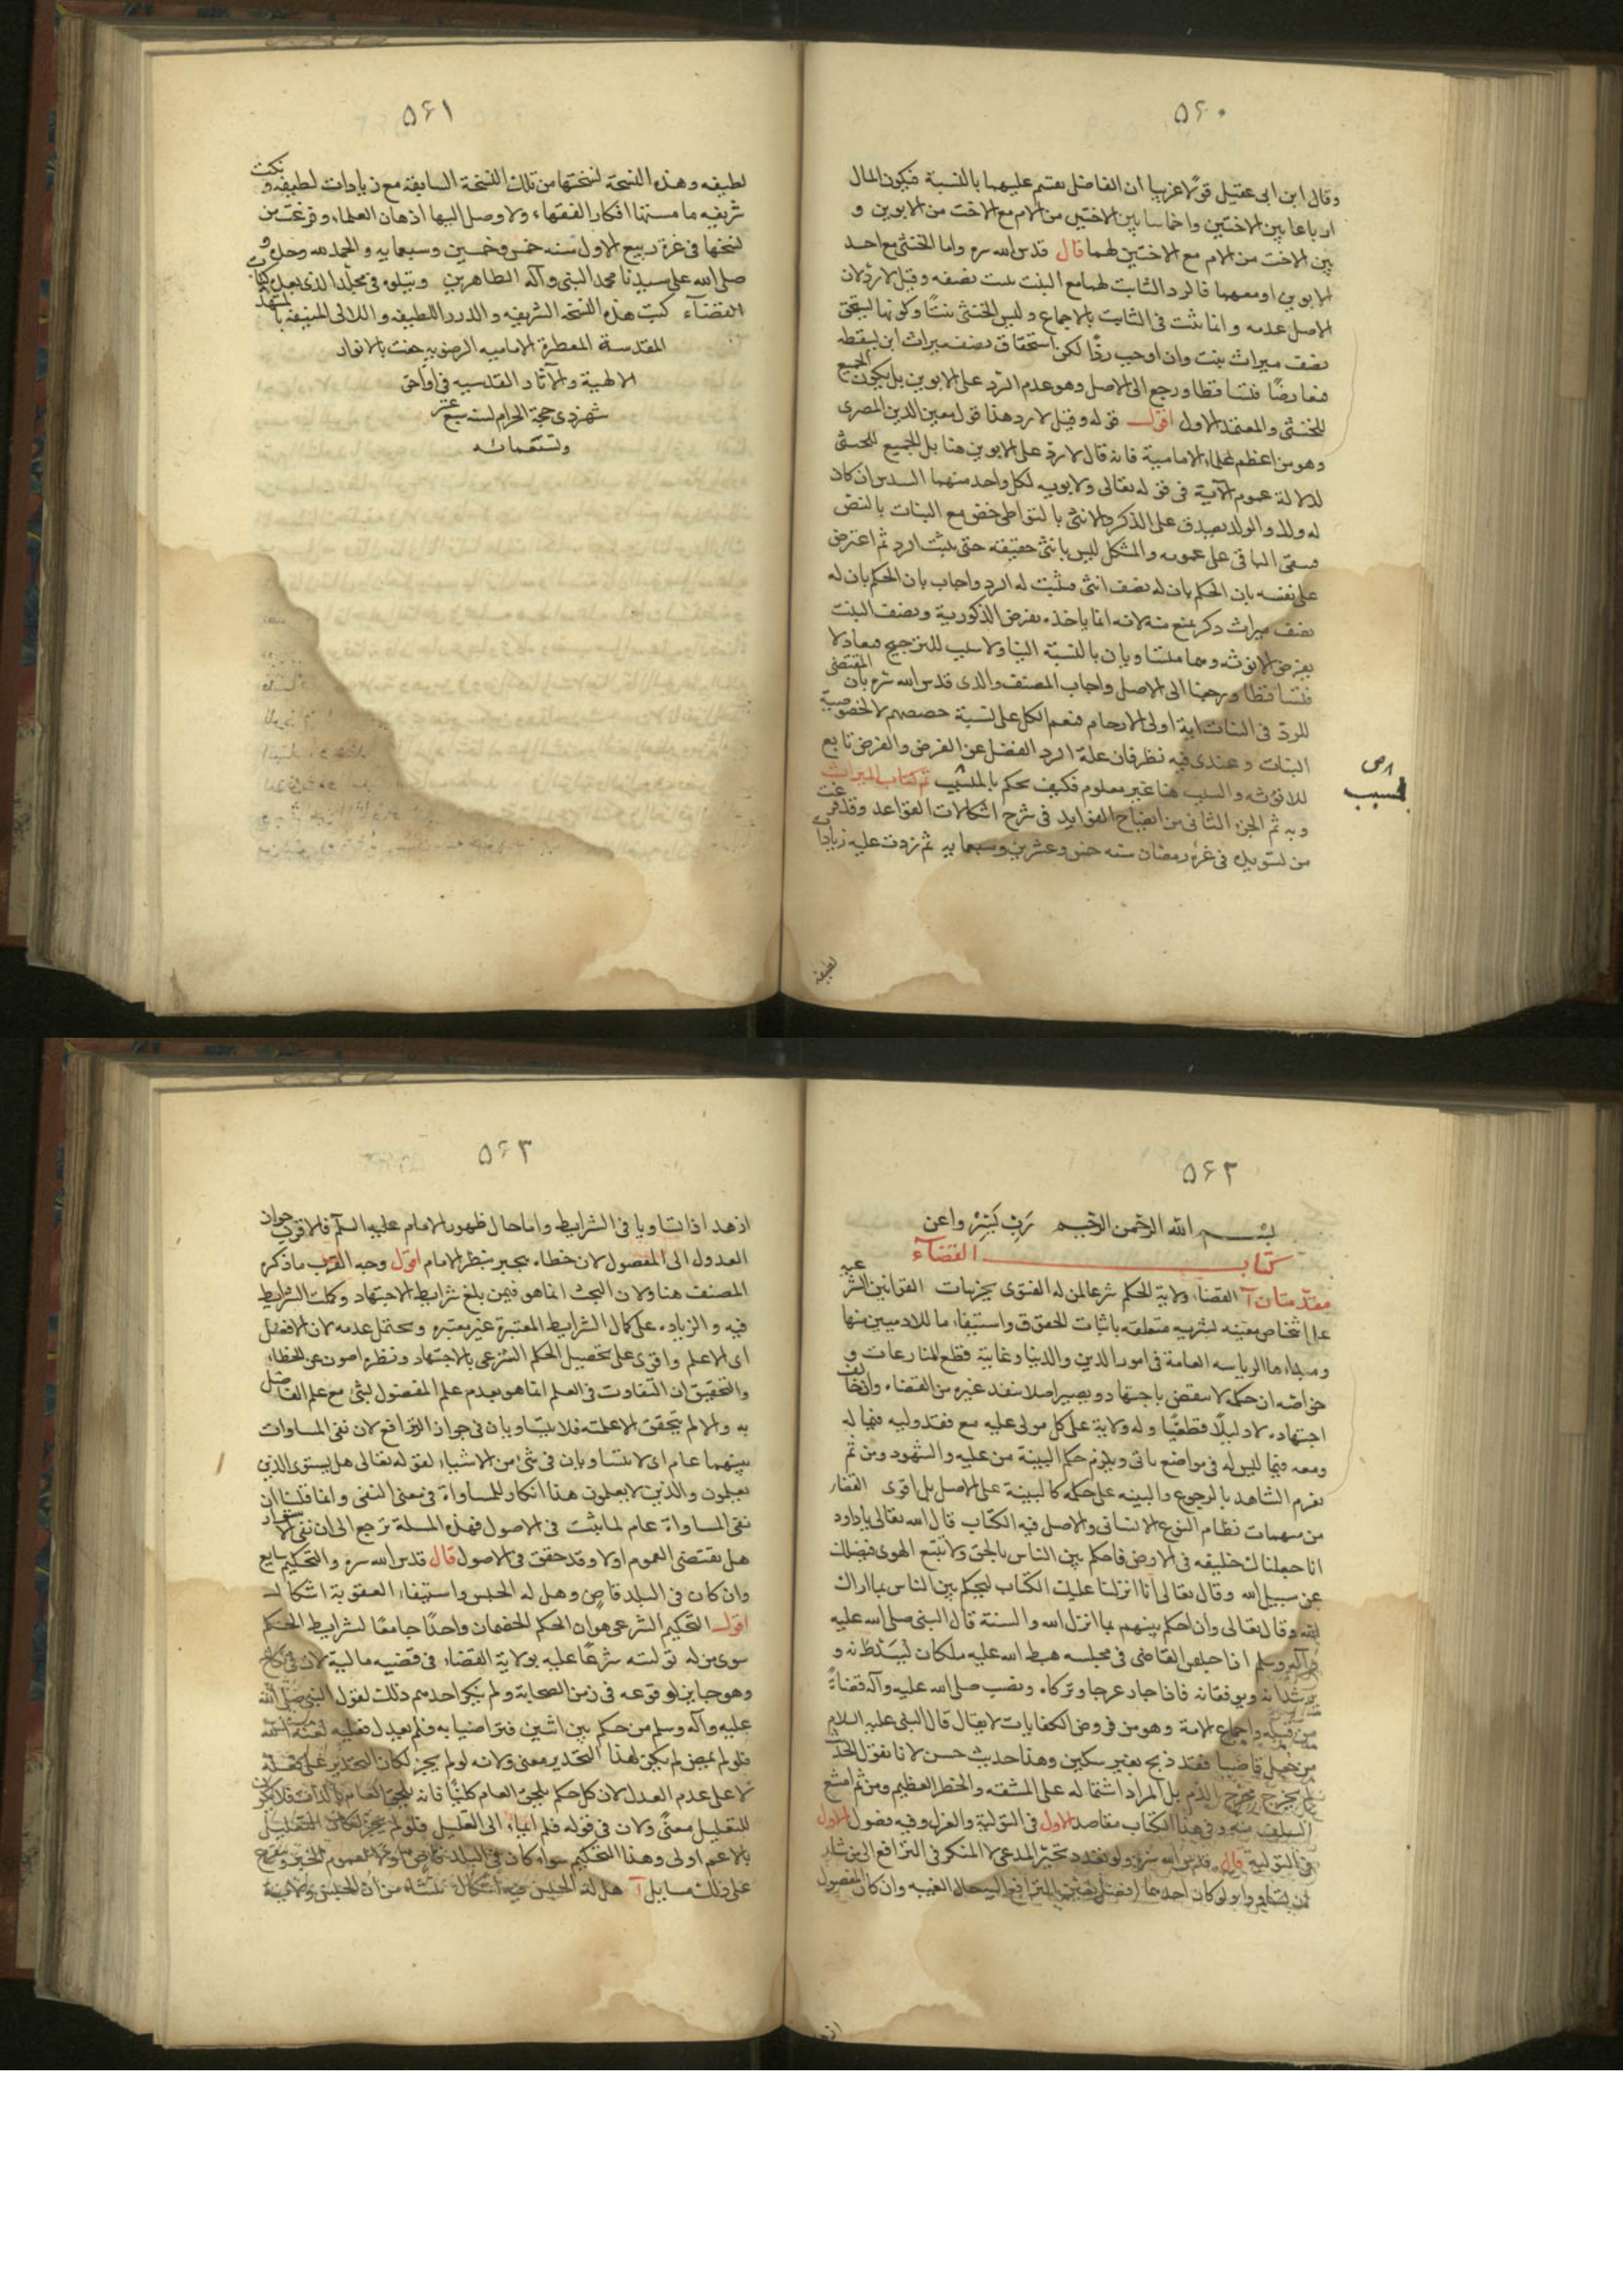 ۵۶۰
وقال ابن ابى عقيل قولا غريبا ان الفاضل يقسم عليهما بالنسبة فيكون المال
ارباعا بين الاختين واخماسا بين الاختين من الام مع الاخت من الابوين و
بين الاخت من الام مع الاختين لهما قال قدس الله سره واما الخنثى مع احد
الابوين او معهما فالرد الثابت لهما مع البنت يثبت نصفه وقيل لا رد لان
الاصل عدمه وانما يثبت فى الثابت بالاجماع وليس الخنثى بنتا وكونها تستحق
نصف ميراث بنت وان اوجب ردا لكن استحقاق نصف ميراث ابن يسقطه
فتعارضا فتساقطا ورجع الى الاصل وهو عدم الرد على الابوين بل يكون الجميع
للخنثى والمعتمد الاول اقول قوله وقيل لا رد هذا قول معين الدين المصرى
وهو من اعظم علماء الامامية فانه قال لا رد على الابوين هنا بل الجميع للخنثى
لدلالة عموم الآية فى قوله تعالى ولابويه لكل واحد منهما السدس ان كان
له ولد والولد يصدق على الذكر والانثى بالتواطى خص مع البنات بالنص
فيبقى الباقى على عمومه والمشكل ليس بانثى حقيقة حتى يثبت الرد ثم اعترض
على نفسه بان الحكم بان له نصف انثى فيثبت له الرد واجاب بان الحكم بان له
نصف ميراث ذكر يمنع منه لانه انما ياخذه بفرض الذكورية ونصف البنت
بفرض الانوثه وهما متساويان بالنسبة الينا ولا سبب للترجيح فتعادلا
فتساقطا ورجعنا الى الاصل واجاب المصنف والدى قدس الله سره بان المقتضى
للرد فى البنات اية اولى الارحام فتعم الكل على نسبة حصصهم لا لخصوصية
البنات وعندى فيه نظر فان علة الرد الفضل عن الفرض والفرض تابع
للانوثه والسبب هنا غير معلوم فكيف يحكم بالمسبب تم كتاب الميراث
وبه تم الجزء الثانى من ايضاح الفوايد فى شرح اشكالات القواعد وقد فرغت
من تسويده فى غرة رمضان سنه خمس وعشرين وسبعمايه ثم زدت عليه زيادات
لطيفه
۵۶۱
لطيفه وهذه النسخة نسختها من تلك النسخة السابقة مع زيادات لطيفه ونكت
شريفه ما مستها افكار الفقهاء ولا وصل اليها اذهان العلماء وفرغت من
نسخها فى غرة ربيع الاول سنه خمس وخمسين وسبعمايه والحمد لله وحده و
صلى الله على سيدنا محمد النبى وآله الطاهرين ويتلوه فى مجلد الذى بعده كتاب
القضاء كتبت هذه النسخه الشريفه والدرر اللطيفه واللالى المنيفه بالمشهد
المقدسة المعطرة الامامييه الرضويه حفت بالانوار
الالهية والآثار القدسيه فى اواخر
شهر ذى حجة الحرام لسنة سبع عشر
وتسعمائه
۵۶۲
بسم الله الرحمن الرحيم رب يسر واعن
كتاب القضاء
مقدمتان آ القضاء ولاية الحكم شرعا لمن له الفتوى بجزئيات القوانين الشرعيه
على اشخاص معينه بشريه متعلقه باثبات الحقوق واستيفاء ما للادميين منها
ومبداءها الرياسه العامة فى امور الدين والدنيا وغايته قطع المنازعات و
خواصه ان حكمه لا ينقض باجتهاد ويصير اصلا ينفذ غيره من القضاء وان خالف
اجتهاده لا دليلا قطعيا وله ولاية على كل مولى عليه مع فقد وليه فيما له
ومعه فيما ليس له فى مواضع ياتى ويلزم حكم البينة من عليه والشهود ومن ثم
يغرم الشاهد بالرجوع والبينه على حكمه كالبينة على الاصل بل اقوى القضاء
من مهمات نظام النوع الانسانى والاصل فيه الكتاب قال الله تعالى يا داود
انا جعلناك خليفه فى الارض فاحكم بين الناس بالحق ولا تتبع الهوى فيضلك
عن سبيل الله وقال تعالى انا انزلنا عليك الكتاب لتحكم بين الناس بما اراك
الله وقال تعالى وان احكم بينهم بما انزل الله والسنة قال النبى صلى الله عليه
وآله وسلم اذا جلس القاضى فى مجلسه هبط الله عليه ملكان يسددانه و
يرشدانه ويوفقانه فاذا جار عرجا وتركاه ونصب صلى الله عليه وآله قضاة
من قبله واجماع الامة وهو من فروض الكفايات لا يقال قال النبى عليه السلام
من جعل قاضيا فقد ذبح بغير سكين وهذا حديث حسن لانا نقول الحديث
لم يخرج مخرج الذم بل المراد اشتماله على المشقه والخطر العظيم ومن ثم امتنع
السلف منه وفى هذا الكتاب مقاصد الاول فى التولية والعزل وفيه فصول الاول
فى التولية قال قدس الله سره ولو تعدد تخير المدعى لا المنكر فى الترافع الى من شاء
ان تساووا ولو كان احدهما افضل تعين الترافع اليه حال الغيبه وان كان المفضول
ازهد
۵۶۳
ازهد اذا تساويا فى الشرايط واما حال ظهور الامام عليه السلم فالاقرب جواز
العدول الى المفضول لان خطاءه يجبر بنظر الامام اقول وجه القرب ما ذكره
المصنف هنا ولان البحث انما هو فيمن بلغ شرايط الاجتهاد وكملت الشرايط
فيه والزيادة على كمال الشرايط المعتبرة غير معتبره ويحتمل عدمه لان الافضل
اى الاعلم واقوى على تحصيل الحكم الشرعى بالاجتهاد ونظره اصون عن الخطاء
والتحقيق ان التفاوت فى العلم انما هو بعدم علم المفضول بشئ مع علم الفاضل
به والا لم يتحقق الاعلميه فلا يتساويان فى جواز الترافع لان نفى المساوات
بينهما عام اى لا يتساويان فى شئ من الاشياء لقوله تعالى هل يستوى الذين
يعلمون والذين لا يعلمون هذا انكار للمساواة فى معنى النفى وانما قلنا ان
نفى المساواة عام لما يثبت فى الاصول فهذه المسلة ترجع الى ان نفى الاستواء
هل يقتضى العموم اولا وقد حقق فى الاصول قال قدس الله سره والتحكيم سايغ
وان كان فى البلد قاض وهل له الحبس واستيفاء العقوبة اشكال
اقول التحكيم الشرعى هو ان الحكم الخصمان واحدا جامعا لشرايط الحكم
سوى من له توليته شرعا عليه بولاية القضاء فى قضيه مالية لا فى نكاح
وهو جايز لوقوعه فى زمن الصحابة ولم ينكر احد منهم ذلك لقول النبى صلى الله
عليه وآله وسلم من حكم بين اثنين فتراضيا به فلم يعدل فعليه لعنة الله
فلو لم يمض لم يكن لهذا التحذير معنى ولانه لو لم يجز لكان التحذير على فعله
لا على عدم العدل لان كل حكم للعام كليا فانه للعام بالذات فلا يكون
للتعليل معنى ولان فى قوله فلم ايماء الى التعليل فلو لم يجز لكان التعليل
بالاعم اولى وهذا التحكيم سواء كان فى البلد قاض اولا لعموم الخبر ويتفرع
على ذلك مسايل آ هل له الحبس فيه اشكال ينشاء من ان الحبس ولاية